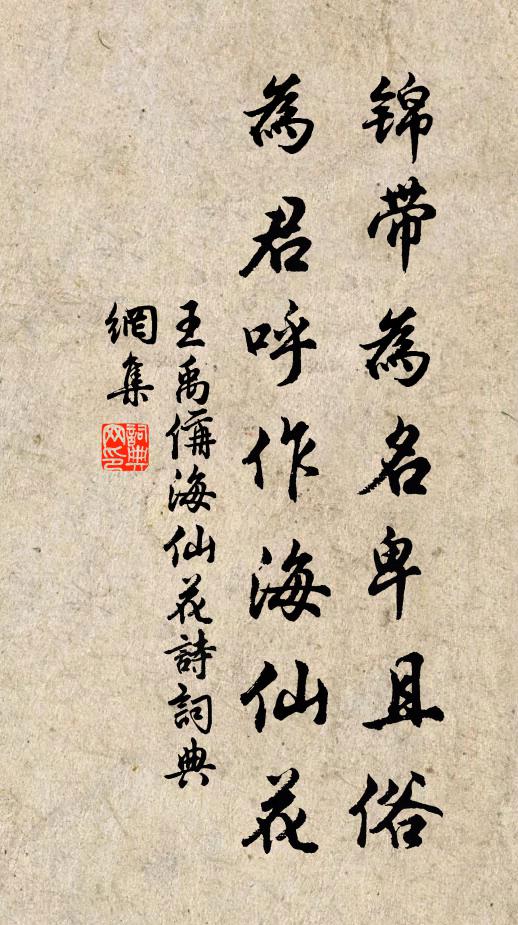 锦带為名卑且俗
為君呼作海仙花
王禹偁海仙花詩詞典
網集
詞典
网印